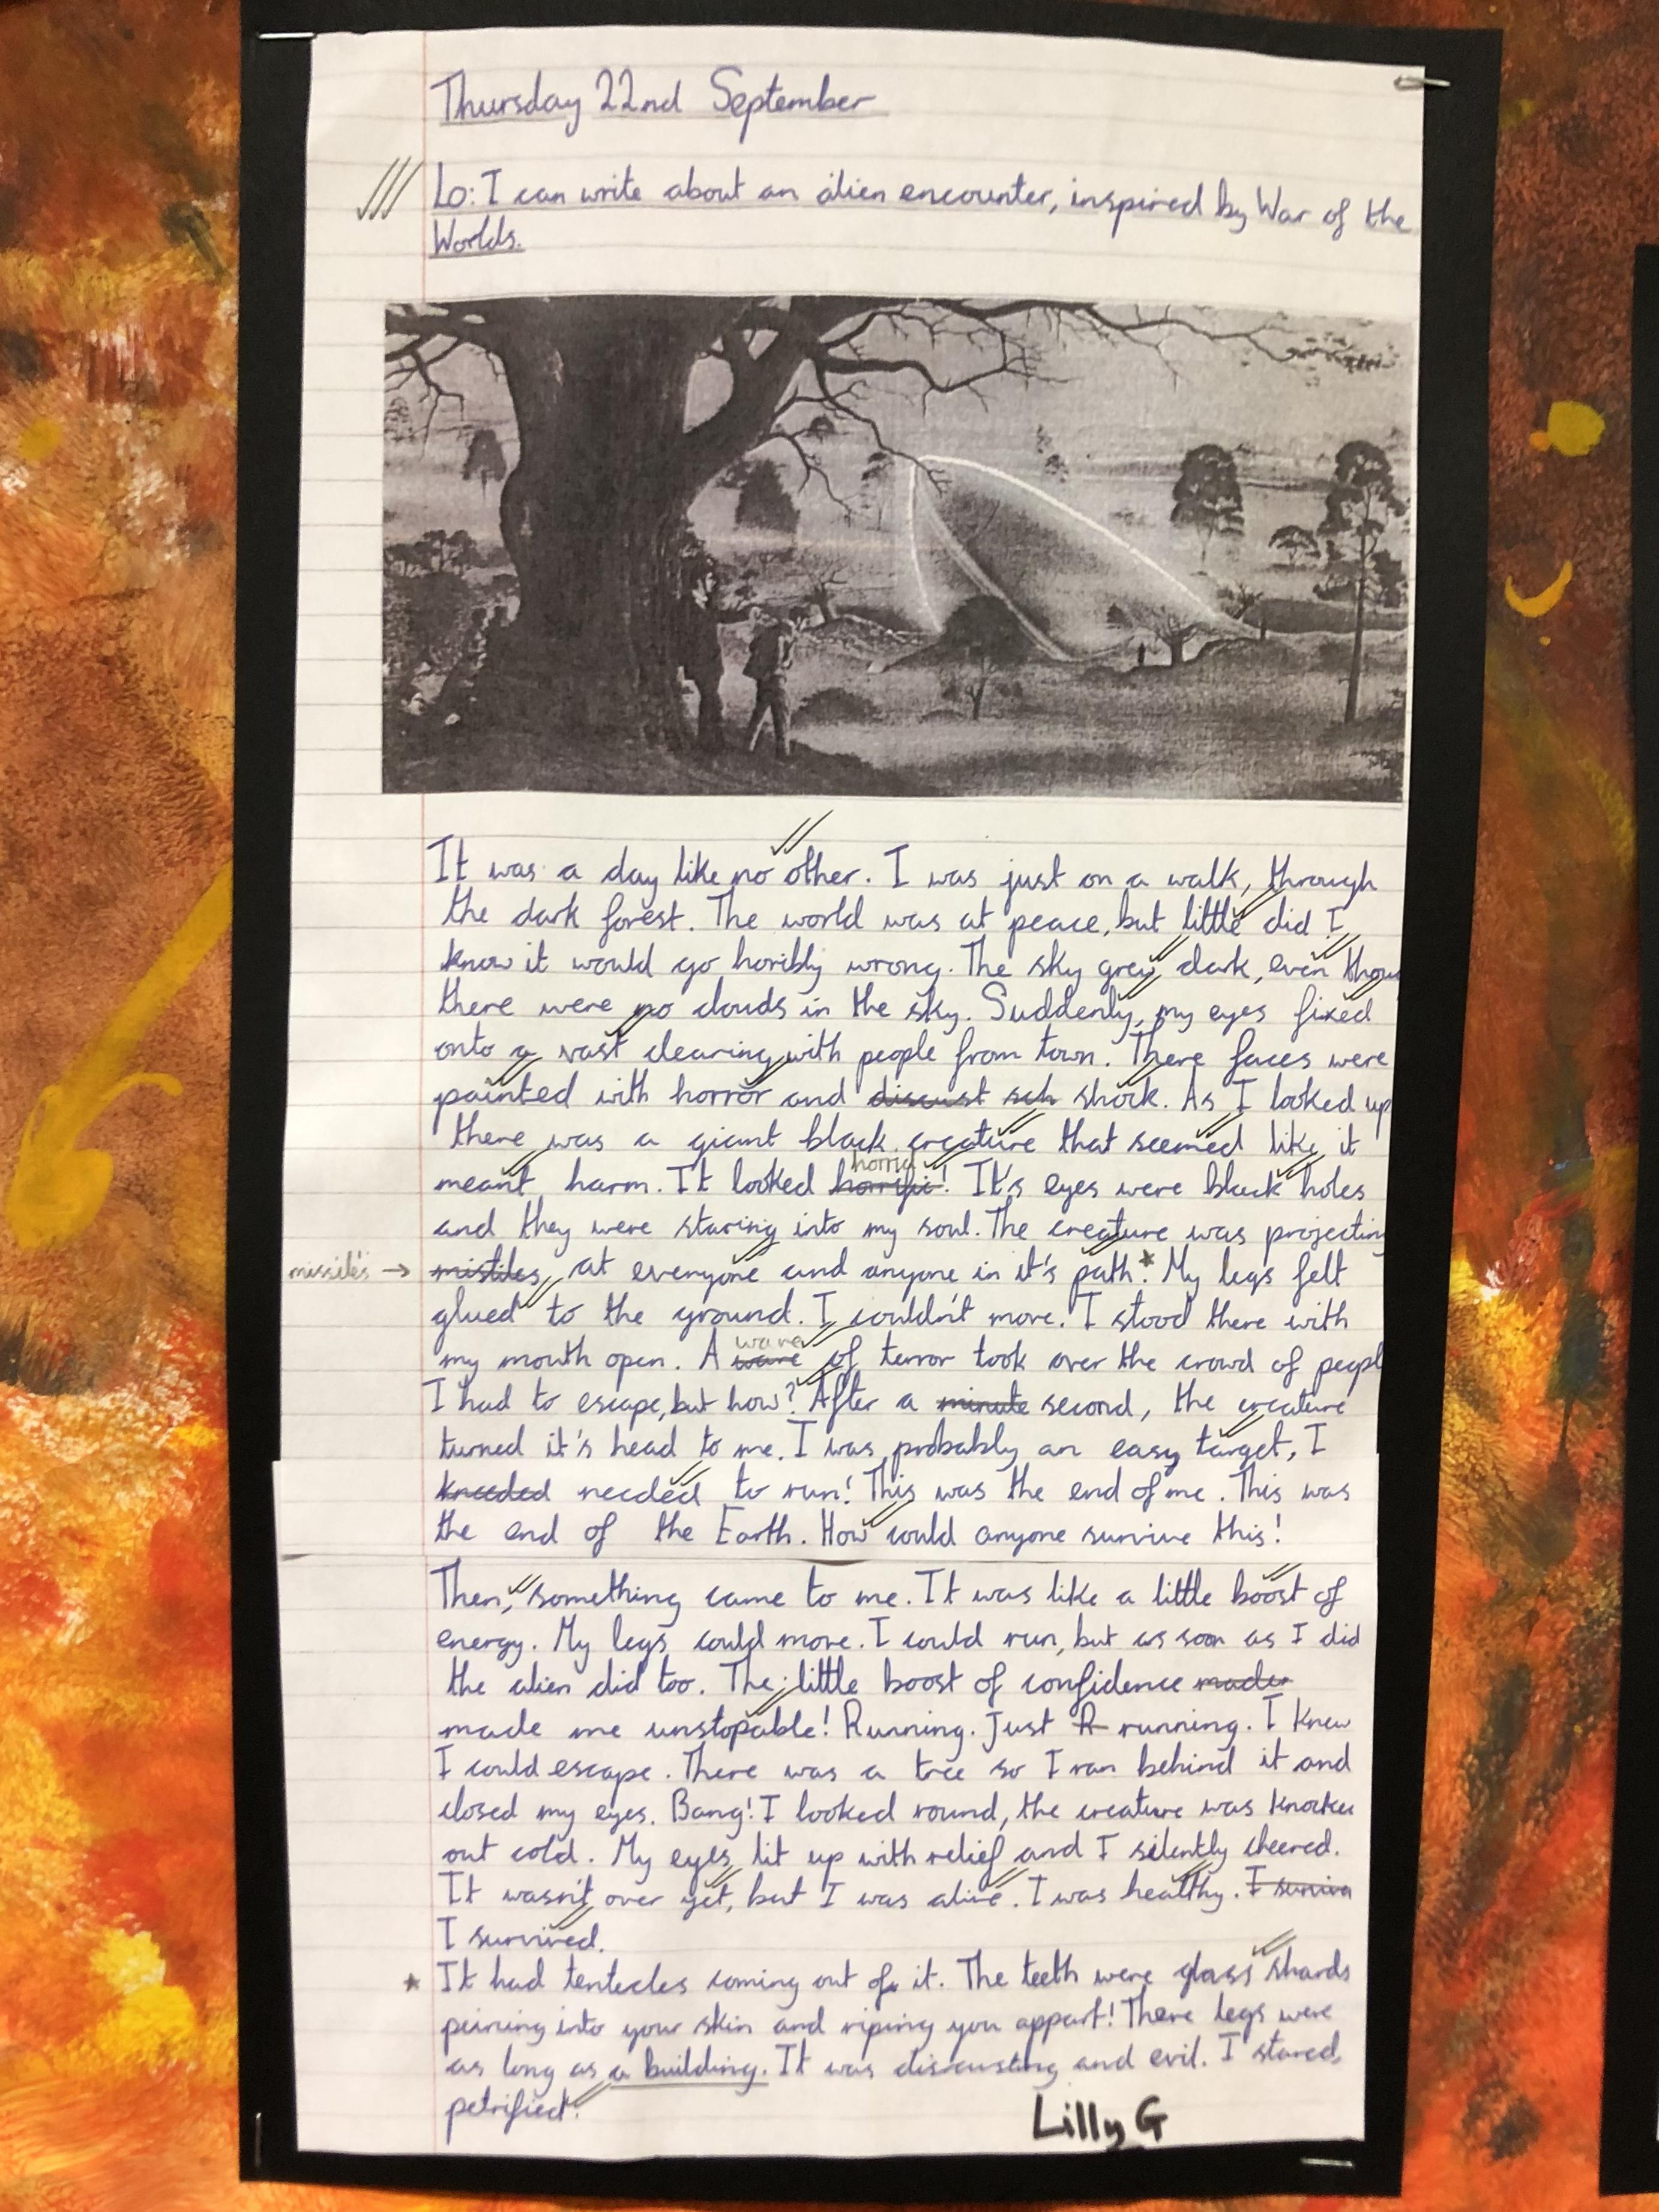 Thursday 22nd September
Lo: I can write about an alien encounter, inspired by War of the
Worlds.
It was a day like no other. I was just on a walk, through
the dark forest. The world was at peace, but little did I
know it would go horibly wrong. The sky grey, dark, even thou
there were no clouds in the sky. Suddenly, my eyes fixed
onto a vast clearing with people from town. There faces were
painted with horror and discust sch shock. As I looked up
there was a giant black creature that seemed like it
horrid
meant harm. It looked horrific! It's eyes were black holes
and they were staring into my soul. The creature was projecting
missiles → mistiles, at everyone and anyone in it's path.* My legs felt
glued to the ground. I couldn't move. I stood there with
wave
my mouth open. A wave of terror took over the crowd of peopl
I had to escape, but how? After a minute second, the creature
turned it's head to me. I was probably an easy target, I
kneeded needed to run! This was the end of me. This was
the end of the Earth. How could anyone survive this!
Then, something came to me. It was like a little boost of
energy. My legs could move. I could run, but as soon as I did
the alien did too. The little boost of confidence made
made me unstopable! Running. Just R running. I knew
I could escape. There was a tree so I ran behind it and
closed my eyes. Bang! I looked round, the creature was knocked
out cold. My eyes lit up with relief and I silently cheered.
It wasn't over yet, but I was alive. I was healthy. I surviv
I survived.
* It had tentecles coming out of it. The teeth were glass shards
peircing into your skin and riping you appart! There legs were
as long as a building. It was discusting and evil. I stared,
petrified.
Lilly G